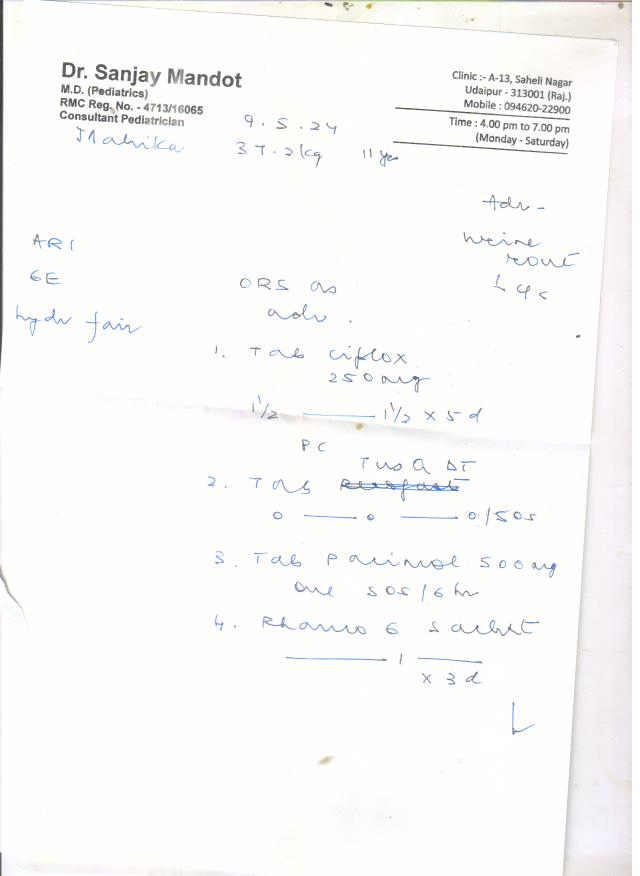 Dr. Sanjay Mandot
M.D. (Pediatrics)
RMC Reg. No. - 4713/16065
Consultant Pediatrician
Clinic :- A-13, Saheli Nagar
Udaipur - 313001 (Raj.)
Mobile : 094620-22900
Time : 4.00 pm to 7.00 pm
(Monday - Saturday)
9.5.24
37.2kg 11 yrs
Adv -
ARI
GE
hydr fair
ORS as
adv.
1. Tab ciflox
250mg
1½ —— 1½ x 5 d
PC
2. Tab
0 —— 0 —— 0/SOS
3. Tab Parimol 500mg
one SOS/6 hr
4. sachet
—— 1 ——
x 3 d